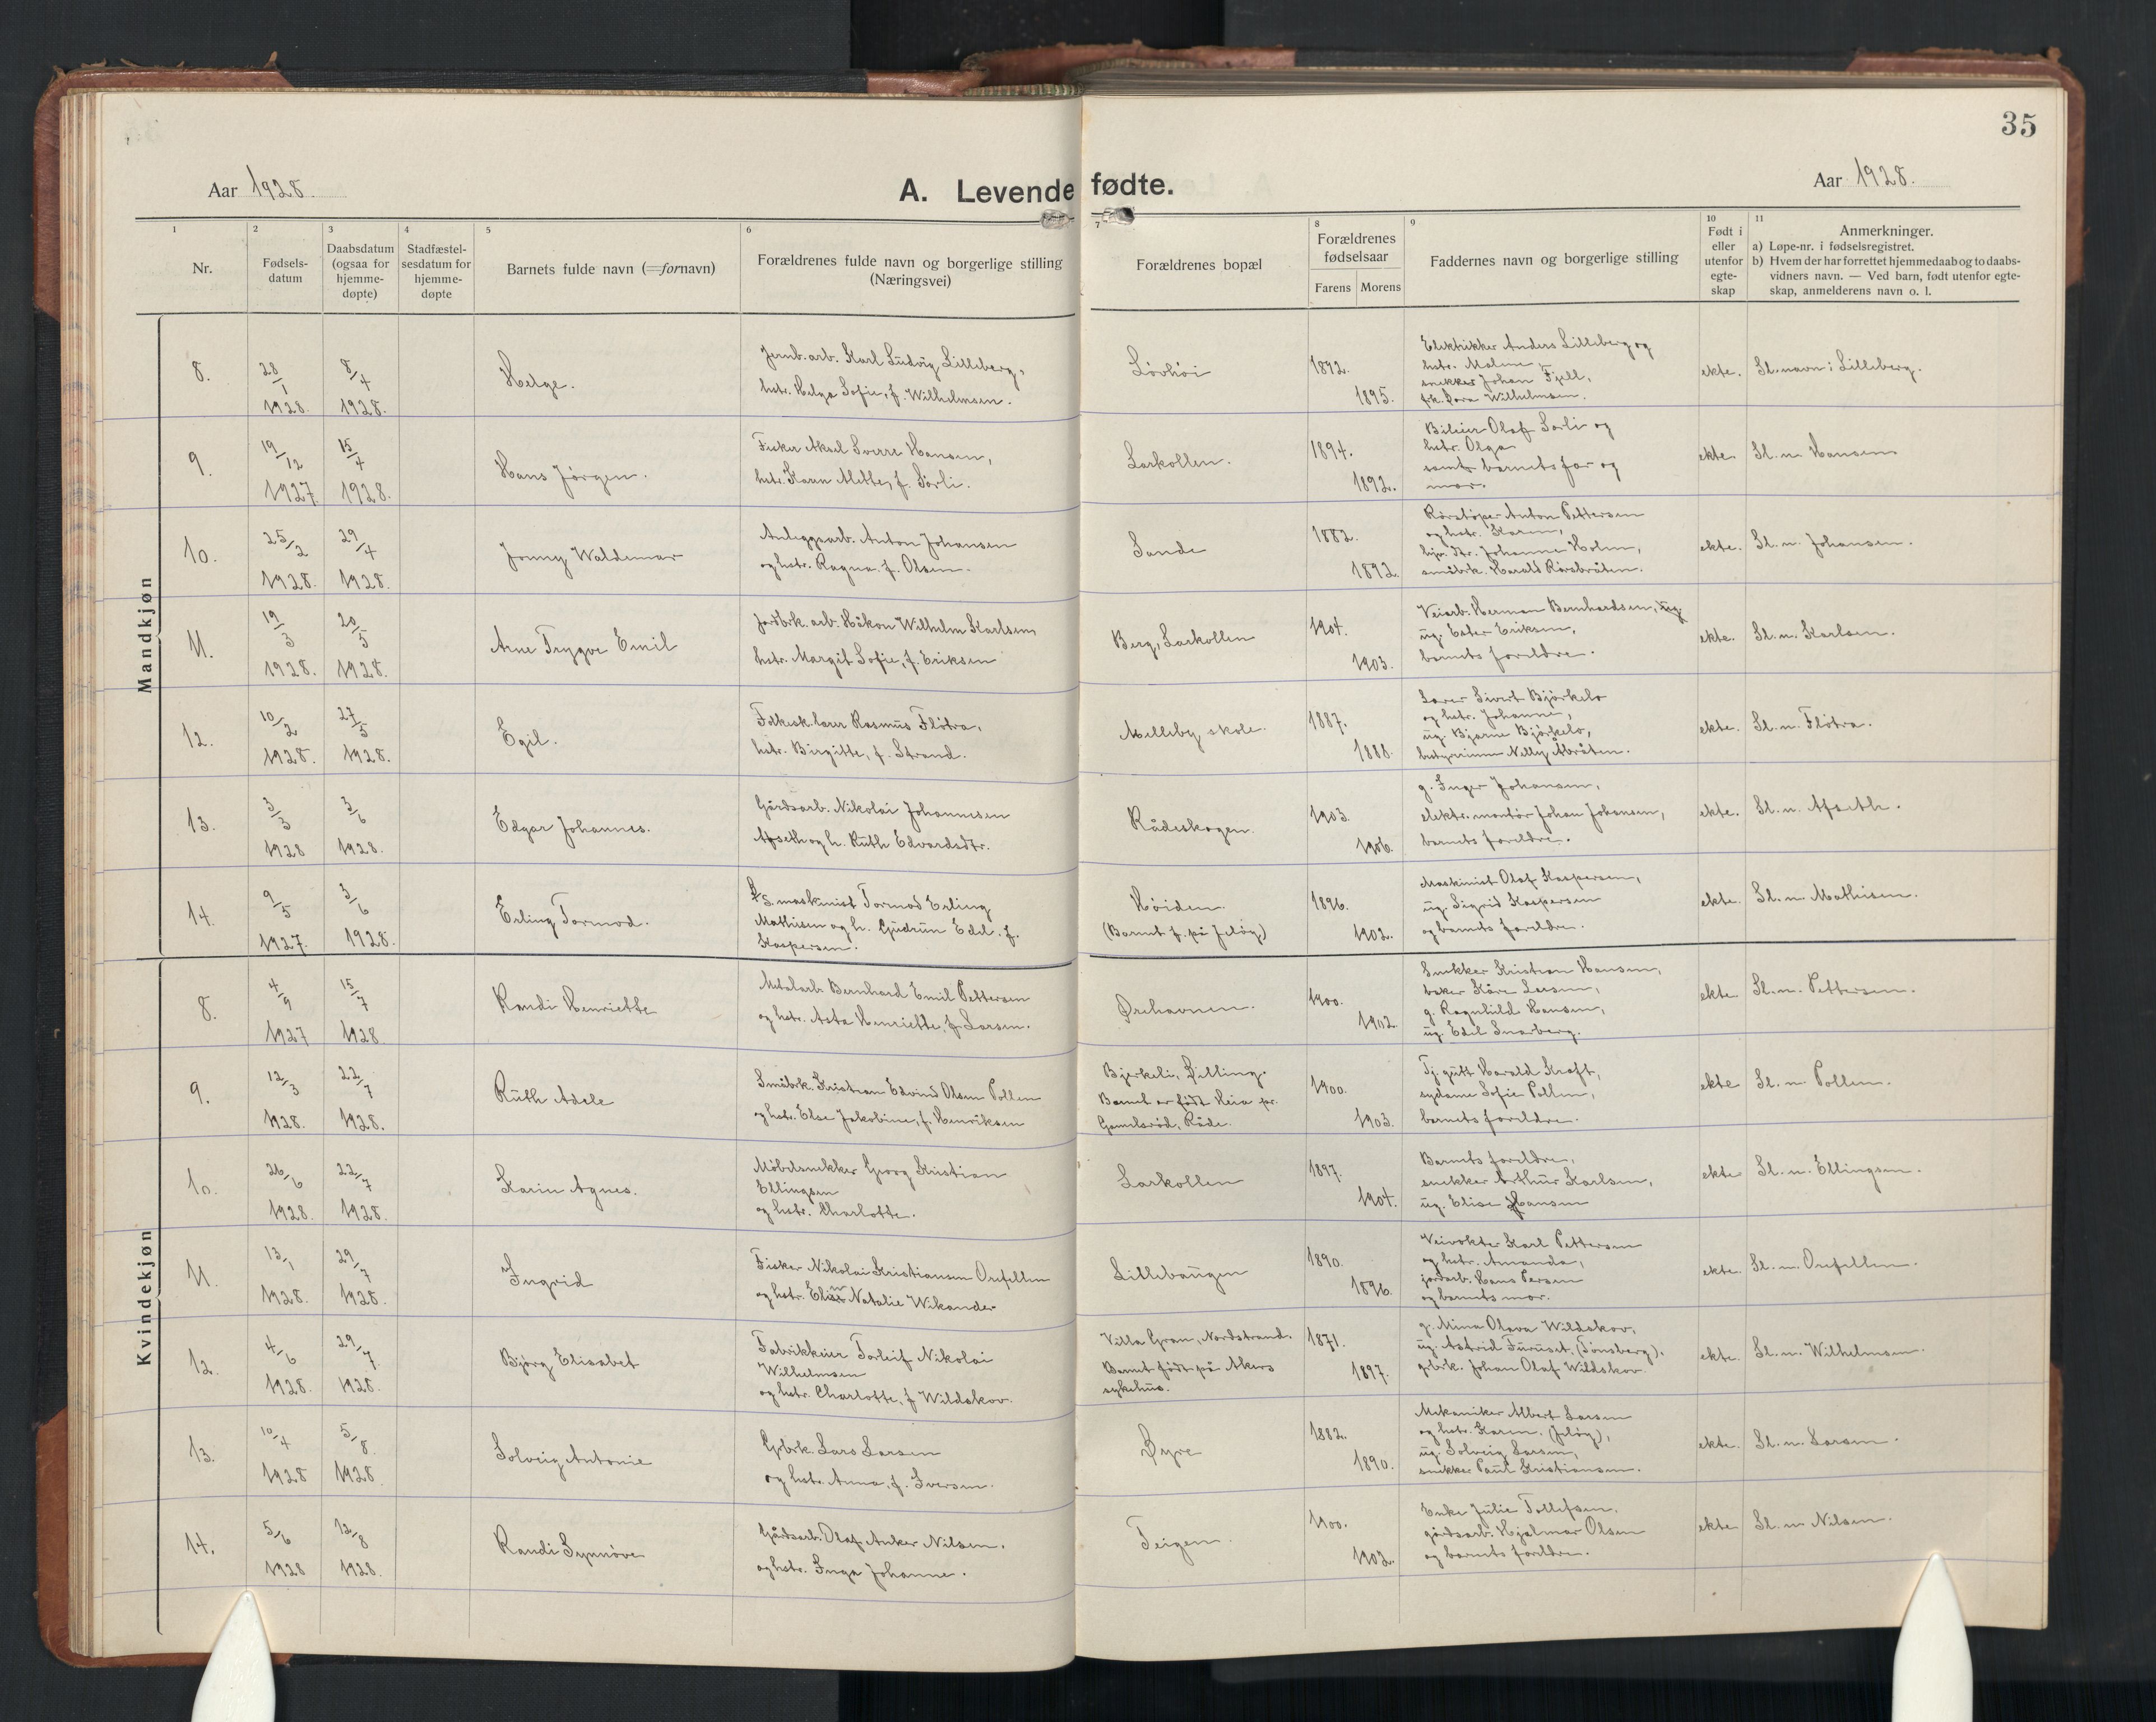 35
Aar 1928.
A. Levende fødte.
Aar 1928.
1 2 3 4 5 6 7 8 9 10 11
Nr.
Fødsels-
datum
Daabsdatum
(ogsaa for
hjemme-
døpte)
Stadfæstel-
sesdatum for
hjemme-
døpte
Barnets fulde navn (=fornavn)
Forældrenes fulde navn og borgerlige stilling
(Næringsvei)
Forældrenes bopæl
Forældrenes
fødselsaar
Farens Morens
Faddernes navn og borgerlige stilling
Født i
eller
utenfor
egte-
skap
Anmerkninger.
a) Løpe-nr. i fødselsregistret.
b) Hvem der har forrettet hjemmedaab og to daabs-
vidners navn. — Ved barn, født utenfor egte-
skap, anmelderens navn o. l.
Mandkjøn
8.
28/1
1928.
8/4
1928.
Helge.
Jernb. arb. Karl Ludvig Lilleberg,
hstr. Helga Sofie, f. Wilhelmsen.
Løvhöi
1892.
1895.
Elektrikker Anders Lilleberg og
hstr. Malene,
snekker Johan Fjell,
frk. Dora Wilhelmsen.
ekte.
Sl. navn: Lilleberg.
9.
19/12
1927.
15/4
1928.
Hans Jørgen.
Fisker Aksel Sverre Hansen,
hstr. Karen Mette, f. Sørli.
Larkollen.
1894.
1892.
Bileier Olaf Sørli og
hstr. Olga
samt barnets far og
mor.
ekte
Sl. n. Hansen
10.
25/2
1928.
29/4
1928.
Jonny Waldemar
Anleggsarb. Anton Johansen
og hstr. Ragna f. Olsen.
Sande
1882.
1892.
Rørstøper Anton Pettersen
og hstr. Karen,
Johanne Holm,
småbrk. Harald Rörsbråten.
ekte.
Sl. n. Johansen.
11.
19/3
1928.
20/5
1928.
Arne Trygve Emil
Jordbrk. arb. Håkon Wilhelm Karlsen,
hstr. Margit Sofie, f. Eriksen
Berg, Larkollen
1904.
1903.
Veiarb. Herman Bernhardsen, ug.
ug. Ester Eriksen,
barnets foreldre.
ekte.
Sl. n. Karlsen.
12.
10/2
1928.
27/5
1928.
Egil.
Folkesk. lærer Rasmus Flötra,
hstr. Birgitte, f. Strand.
Melleby skole.
1887.
1888.
Lærer Sivert Björkelo
og hstr. Johanne,
ug. Bjarne Björkelo,
bestyrerinne Nelly Åbråten.
ekte.
Sl. n. Flötra.
13.
3/3
1928
3/6
1928.
Edgar Johannes.
Gårdsarb. Nikolai Johannesen
Afseth og h. Ruth Edvardsdtr.
Rådeskogen.
1903.
1906.
g. Inger Johansen,
elektr. montör Johan Johansen,
barnets foreldre.
ekte.
Sl. n. Afseth.
14.
9/5
1927.
3/6
1928.
Erling Tormod.
D/S. maskinist Tormod Erling
Mathisen og h. Gudrun Edel. f.
Kaspersen.
Höiden.
(Barnet f. på Jelöy)
1896.
1902.
Maskinist Olaf Kaspersen,
ug. Sigrid Kaspersen
og barnets foreldre.
ekte.
Sl. n. Mathisen.
Kvindekjøn
8.
4/9
1927
15/7
1928
Randi Henriette
Metalarb. Bernhard Emil Pettersen
og hstr. Asta Henriette, f. Larsen.
Ørehavnen.
1900.
1902.
Snekker Kristian Hansen,
baker Kåre Larsen,
g. Ragnhild Hansen,
ug. Edel Snarberg.
ekte
Sl. n. Pettersen.
9.
12/3
1928.
22/7
1928.
Ruth Adele
Småbrk. Kristian Edvind Olsen Pollen
og hstr. Else Jakobine, f. Henriksen
Bjerkeli, Dilling.
Barnet er født Heia pr.
Gamlsröd, Råde.
1900.
1903.
Tj. gutt Harald Kroft,
sydame Sofie Pollen,
barnets foreldre.
ekte
Sl. n. Pollen.
10.
26/6
1928.
22/7
1928.
Karin Agnes.
Möbelsnekker Georg Kristian
Ellingsen
og hstr. Charlotte.
Larkollen
1897.
1904.
Barnets foreldre,
snekker Arthur Karlsen,
ug. Elise Hansen
ekte
Sl. n. Ellingsen.
11.
13/1
1928.
29/7
1928.
Ingrid
Fisker Nikolai Kristiansen Orefellen
og hstr. Natalie Wikander
Lillebaugen
1890.
1896.
Veivokter Karl Pettersen
og hstr. Amanda,
jordarb. Hans Persen
og barnets mor.
ekte.
Sl. n. Orefellen.
12.
4/6
1928.
29/7.
1928.
Bjørg Elisabet
Fabrikkeier Torleif Nikolai
Wilhelmsen
og hstr. Charlotte, f. Wildskov.
Villa Gran, Nordstrand.
Barnet født på Akers
sykehus.
1871.
1897.
g. Mina Olava Wildskov,
ug. Astrid Furuset, (Tönsberg),
grbrk. Johan Olaf Wildskov
ekte.
Sl. n. Wilhelmsen.
13.
10/4
1928
5/8.
1928.
Solveig Antonie
Grbrk. Lars Larsen
og hstr. Anna, f. Iversen.
Øyre
1882.
1890.
Mekaniker Albert Larsen
og hstr. Karen. (Jelöy),
ug. Solveig Larsen,
snekker Paul Kristiansen.
ekte.
Sl. n. Larsen.
14.
5/6
1928
12/8
1928.
Randi Synnöve
Gårdsarb. Olaf Anker Nilsen.
og hstr. Inga Johanne.
Teigen.
1900.
1902.
Enke Julie Tollefsen.
gårdsarb. Hjalmar Olsen
og barnets foreldre.
ekte
Sl. n. Nilsen.